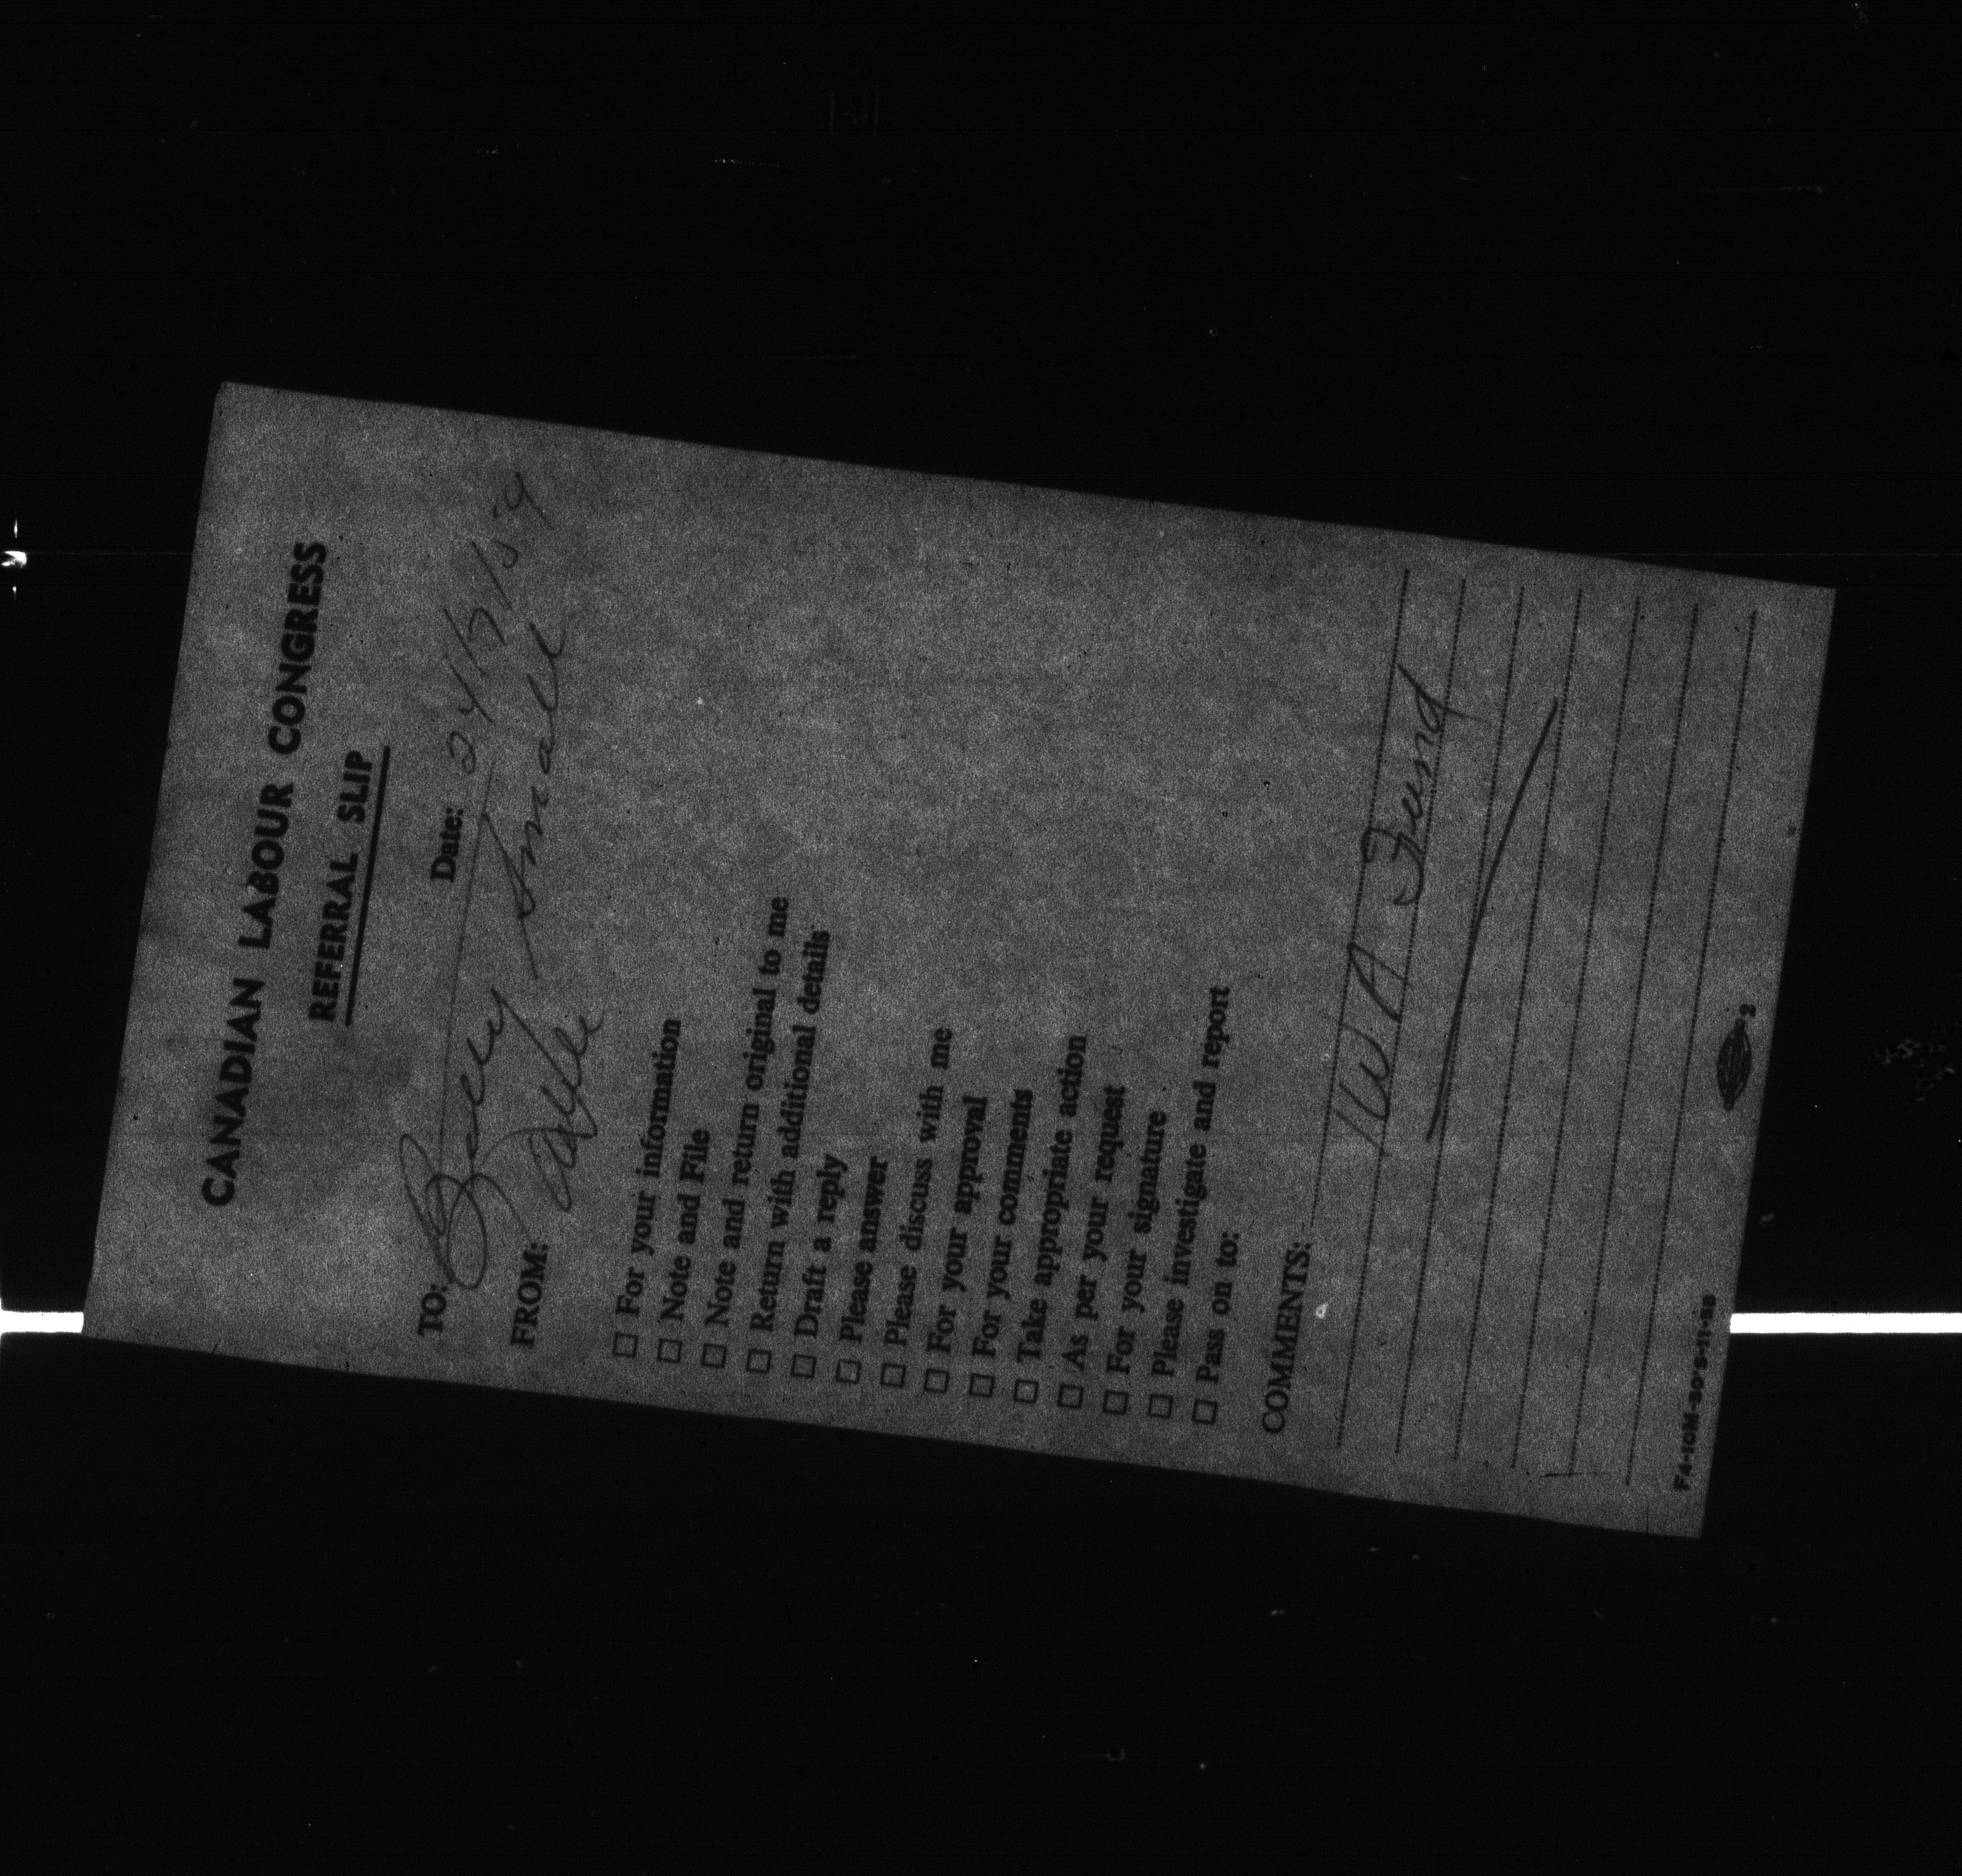 CANADIAN LABOUR CONGRESS
REFERRAL SLIP
Date: 24/3/59
TO:
FROM:
☐ For your information
☐ Note and File
☐ Note and return original to me
☐ Return with additional details
☐ Draft a reply
☐ Please answer
☐ Please discuss with me
☐ For your approval
☐ For your comments
☐ Take appropriate action
☐ As per your request
☐ For your signature
☐ Please investigate and report
☐ Pass on to:
COMMENTS:
IWA Fund
2